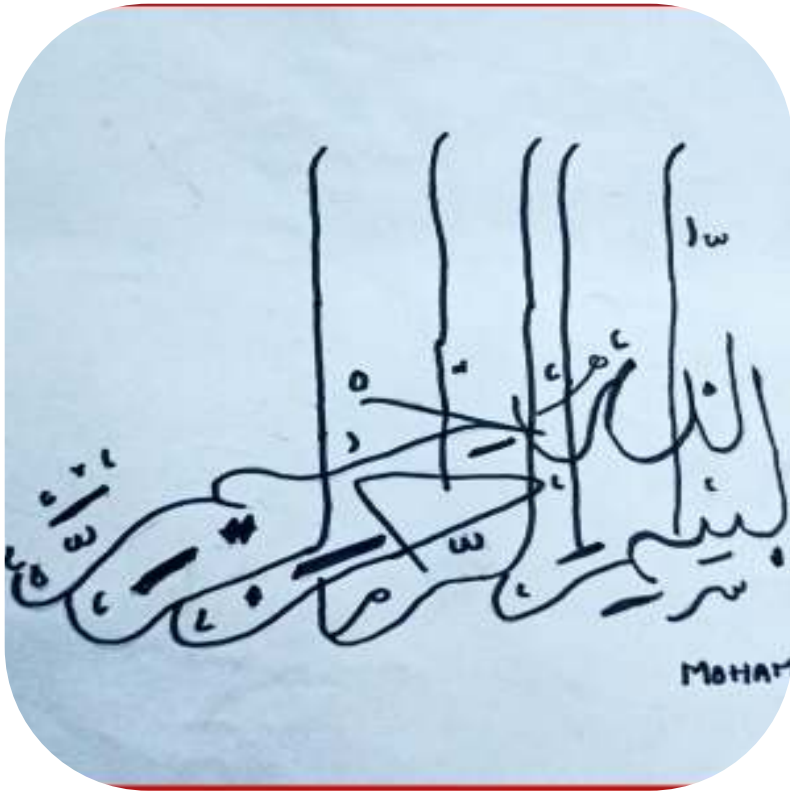 بسم الله الرحمن الرحيم
MOHAM